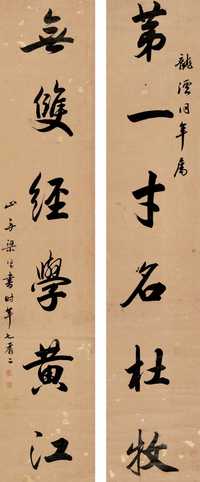 龍溪同年属
第一才名杜牧
無雙經學黃江
山舟梁同書時年七有二